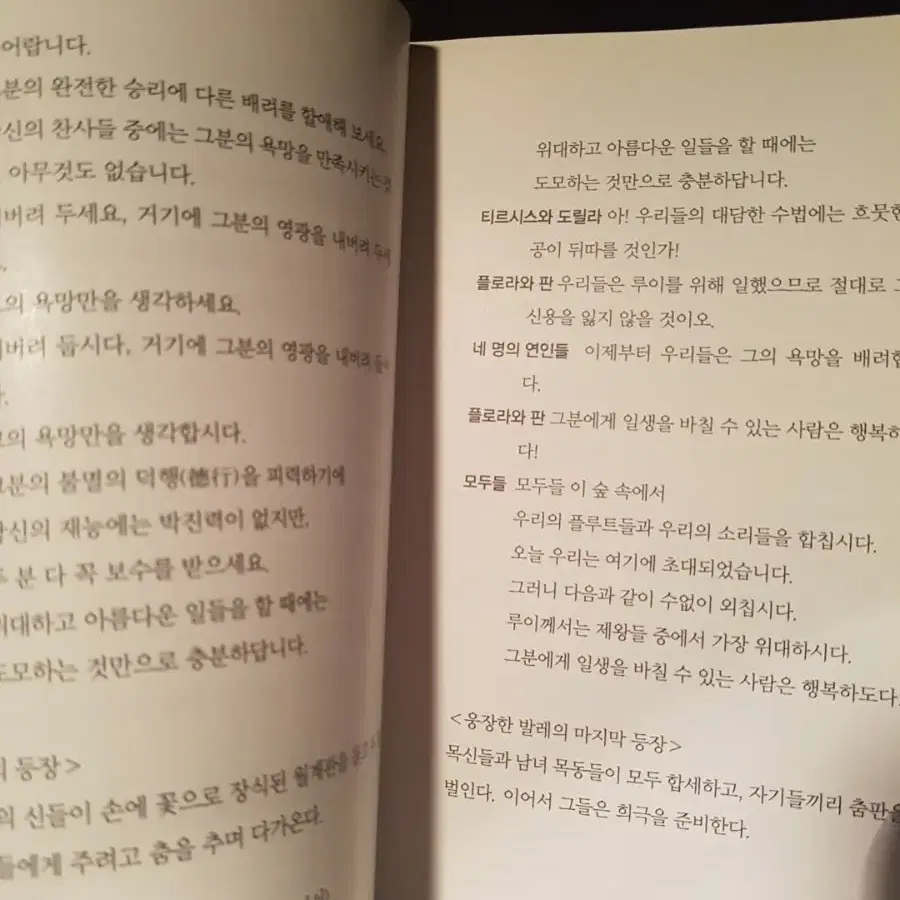 어랍니다.
분의 완전한 승리에 다른 배려를 할애해 보세요.
신의 찬사들 중에는 그분의 욕망을 만족시키는 것
아무것도 없습니다.
버려 두세요, 거기에 그분의 영광을 내버려 두세
의 욕망만을 생각하세요.
버려 둡시다, 거기에 그분의 영광을 내버려
다.
그의 욕망만을 생각합시다.
그분의 불멸의 덕행(德行)을 피력하기에
당신의 재능에는 박진력이 없지만,
두 분 다 꼭 보수를 받으세요.
위대하고 아름다운 일들을 할 때에는
도모하는 것만으로 충분하답니다.
의 등장>
의 신들이 손에 꽃으로 장식된 월계관을 들고
들에게 주려고 춤을 추며 다가온다.
위대하고 아름다운 일들을 할 때에는
도모하는 것만으로 충분하답니다.
티르시스와 도릴라 아! 우리들의 대담한 수법에는 흐뭇한
공이 뒤따를 것인가!
플로라와 판 우리들은 루이를 위해 일했으므로 절대로 그
신용을 잃지 않을 것이오.
네 명의 연인들 이제부터 우리들은 그의 욕망을 배려합
다.
플로라와 판 그분에게 일생을 바칠 수 있는 사람은 행복하
다!
모두들 모두들 이 숲 속에서
우리의 플루트들과 우리의 소리들을 합칩시다.
오늘 우리는 여기에 초대되었습니다.
그러니 다음과 같이 수없이 외칩시다.
루이께서는 제왕들 중에서 가장 위대하시다.
그분에게 일생을 바칠 수 있는 사람은 행복하도다.
<웅장한 발레의 마지막 등장>
목신들과 남녀 목동들이 모두 합세하고, 자기들끼리 춤판을
벌인다. 이어서 그들은 희극을 준비한다.